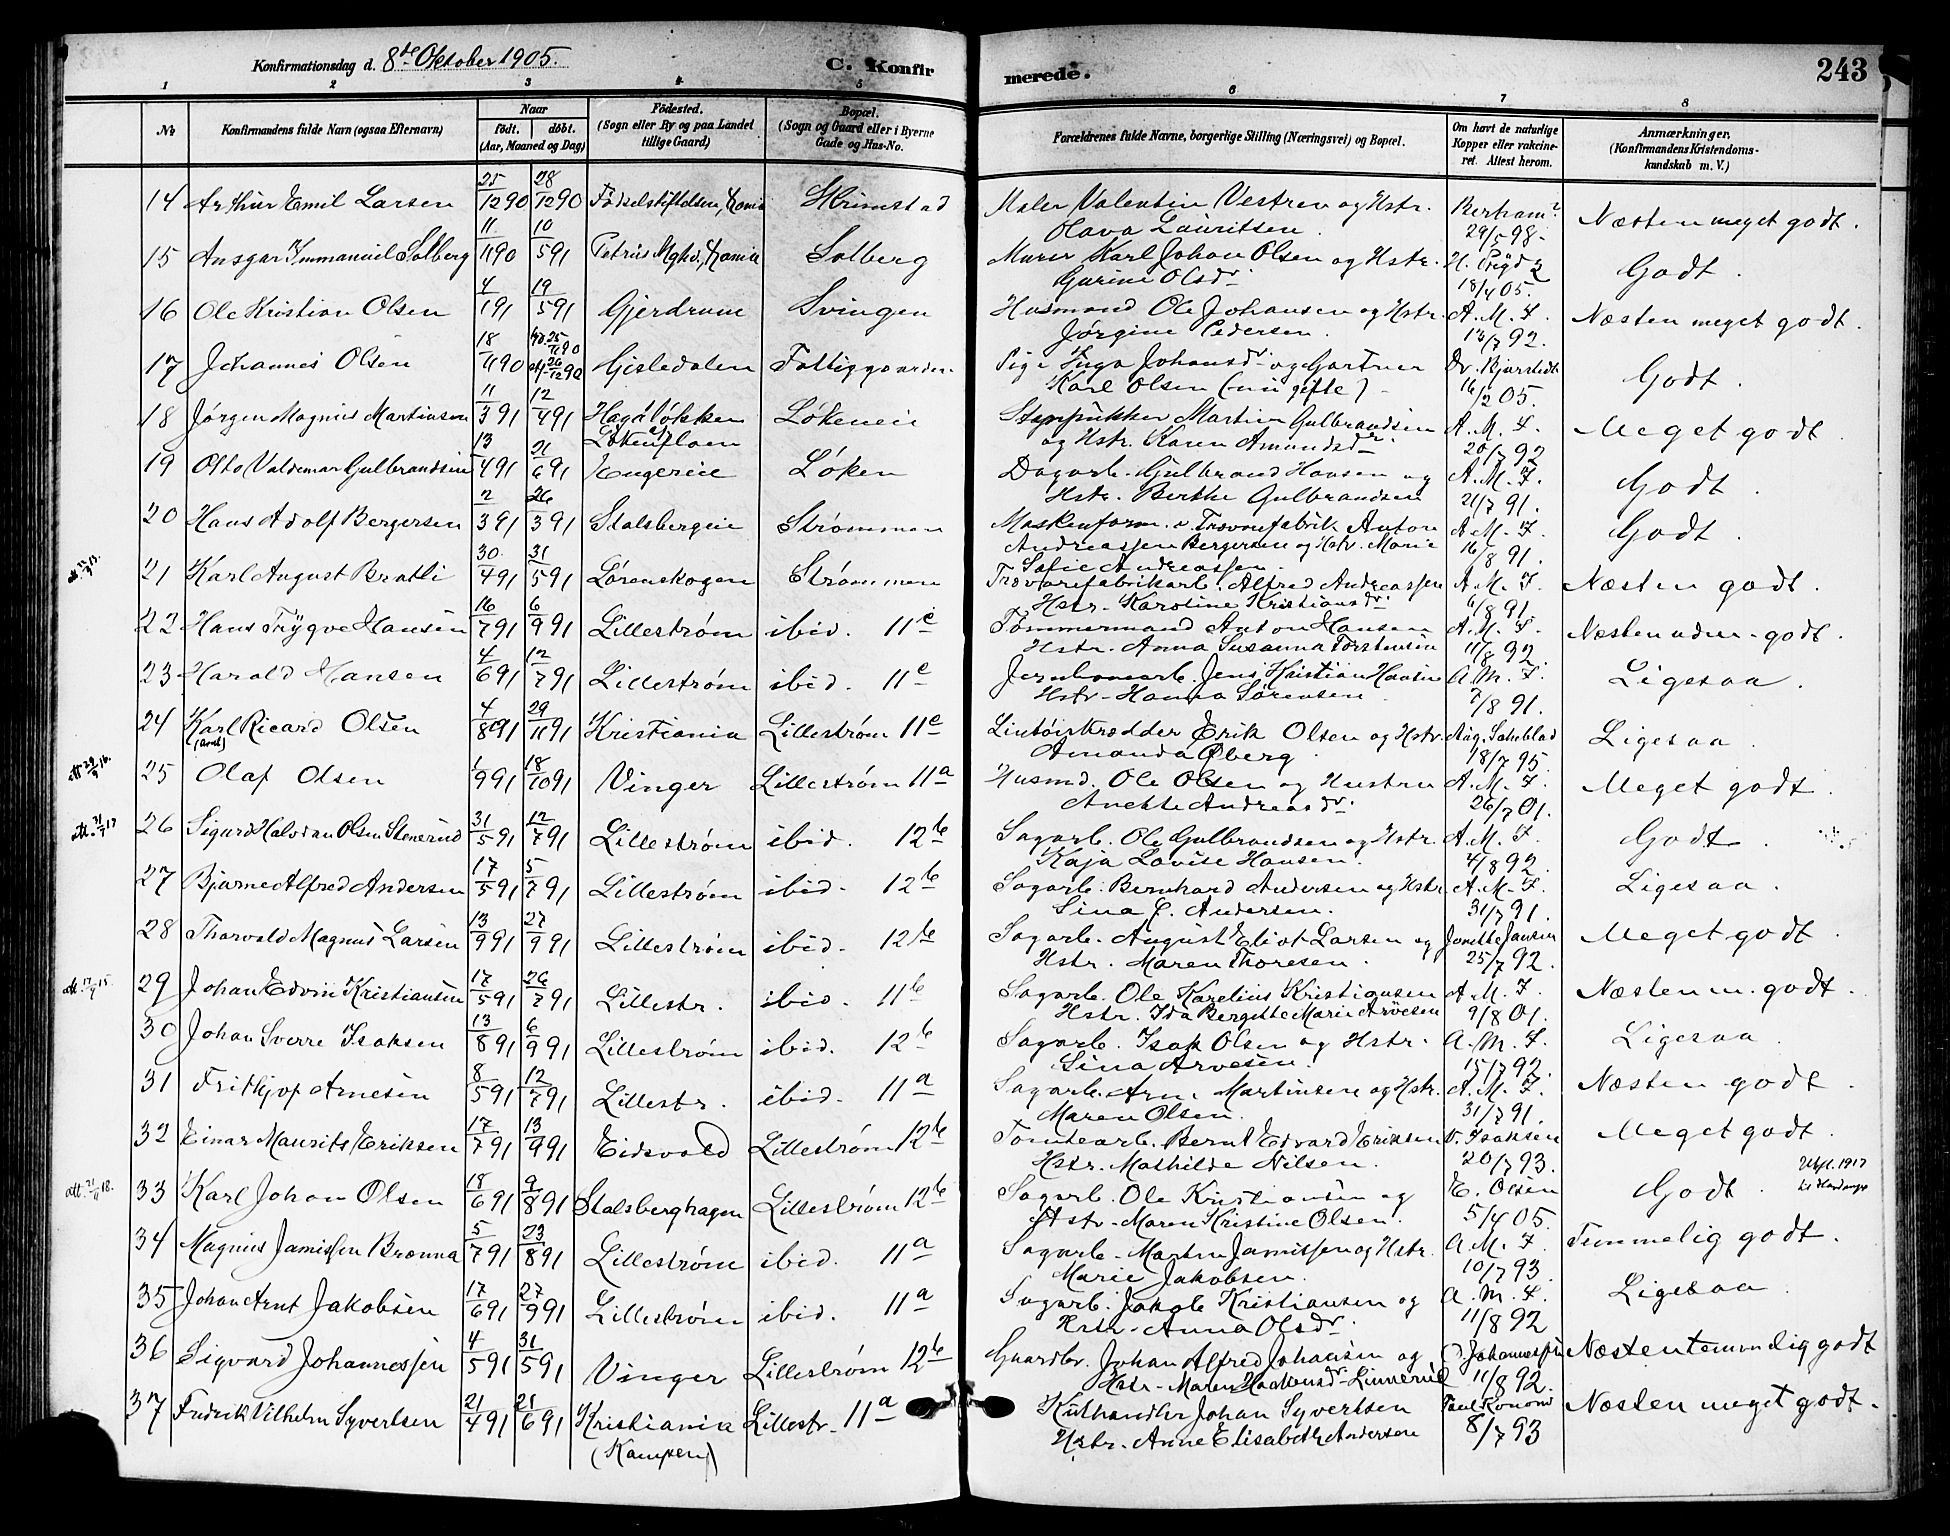 Konfirmationsdag d. 8de Oktober 1905.
C. Konfir
merede.
243
1 2 3 4 5 6 7 8
No
Konfirmandens fulde Navn (ogsaa Efternavn)
Naar
født. døbt.
(Aar, Maaned og Dag)
Fødested.
(Sogn eller By og paa Landet
tillige Gaard)
Bopæl.
(Sogn og Gaard eller i Byerne
Gade og Hus-No.
Forældrenes fulde Navne, borgerlige Stilling (Næringsvei) og Bopæl.
Om havt de naturlige
Kopper eller vakcine-
ret. Attest herom.
Anmærkninger.
(Konfirmandens Kristendoms-
kundskab m. V.)
14 Arthur Emil Larsen 25/12 90 28/12 90 Fødselsstiftelsen, Kania Skrimstad Maler Valentin Vestren og Hstr. Bertram
Olava Lauritsen. 29/5 98. Næsten meget godt.
15 Ansgar Immanuel Solberg 11/11 90 10/5 91 Petrus Mghd., Kania Solberg Murer Karl Johan Olsen og Hstr.
Gurine Olsdr. 18/4 05. Godt.
16 Ole Kristian Olsen 4/1 91 19/5 91 Gjerdrum Svingen Husmand Ole Johansen og Hstr. A.M.F.
Jørgine Pedersen. 13/7 92. Næsten meget godt.
17 Johannes Olsen 18/11 90 25/11 90 26/12 90 Gisledalen Fattiggaarden. Pige Inga Johansdr. og Gartner Dr. Bjørstedt
Karl Olsen (nu gifte) 16/2 05. Godt.
18 Jørgen Magnus Martinsen 11/3 91 12/4 91 Haga Løkken Løkeneie Martin Gulbrandsen A.M.F.
og Hstr. Karen Amundsdr. 20/7 92 Meget godt.
19 Otto Valdemar Gulbrandsen 13/4 91 21/6 91 Engereie Løken Dagarb. Gulbrand Hansen og A.M.F.
Hstr. Berthe Gulbrandsen 21/7 91. Godt.
20 Hans Adolf Bergersen 2/3 91 26/3 91 Stalsbergeie Strømmen Maskenform. v. Trævarefabrik Anton A.M.F.
Andreassen Bergersen og Hstr. Marie 16/8 91. Godt.
Sofie Andreassen.
21 Karl August Bratli 30/4 91 31/5 91 Lørenskogen Strømmen Trævarefabrikarb. Alfred Andreassen A.M.F.
Hstr. Karoline Kristiansdr. 6/8 91. Næsten godt.
22 Hans Trygve Hansen 16/7 91 6/9 91 Lillestrøm ibid. 11c Tømmermand Anton Hansen A.M.F.
Hstr. Anna Susanna Torstensen 11/8 92. Næsten udm. godt.
23 Harald Hansen 4/6 91 12/7 91 Lillestrøm ibid. 11c Jernbanearb. Jens Kristian Hansen A.M.F.
Hstr. Hanna Sørensen. 7/8 91. Ligesaa.
24 Karl Ricard Olsen 4/8 91 29/11 91 Kristiania Lillestrøm 11c Lintøistrædder Erik Olsen og Hstr. Aug. Sahlblad
Amanda Øberg 18/7 95. Ligesaa.
25 Olaf Olsen 1/9 91 18/10 91 Vinger Lillestrøm 11a Husmd. Ole Olsen og Hustru A.M.F.
Anette Andreasdr. 26/7 01. Meget godt.
att. 31/7 17 26 Sigurd Halvdan Olsen Stenerud 31/5 91 12/7 91 Lillestrøm ibid. 12b Sagarb. Ole Gulbrandsen og Hstr. A.M.F.
Kaja Lovise Hansen. 4/8 92. Godt.
27 Bjarne Alfred Andersen 17/5 91 5/7 91 Lillestrøm ibid. 12b Sagarb. Bernhard Andersen og Hstr. A.M.F.
Lina C. Andersen. 31/7 91. Ligesaa.
28 Thorvald Magnus Larsen 13/9 91 27/9 91 Lillestrøm ibid. 12b Sagarb. August Eliot Larsen og Jonette Jansen
Hstr. Maren Thoresen. 25/7 92. Meget godt.
att. 17/9 15 29 Johan Edvin Kristiansen 17/5 91 26/7 91 Lillestr. ibid. 11b Sagarb. Ole Karelius Kristiansen A.M.F.
Hstr. Ida Bergitte Marie Arvesen 9/8 01. Næsten m. godt.
30 Johan Sverre Isaksen 13/8 91 6/9 91 Lillestrøm ibid. 12b Sagarb. Isak Olsen og Hstr. A.M.F.
Lina Arvesen. 15/7 92. Ligesaa.
31 Frithjof Arnesen 8/5 91 12/7 91 Lillestr. ibid. 11a Sagarb. Arne Martinsen og Hstr. A.M.F.
Maren Olsen. 31/7 91. Næsten godt.
32 Einar Maurits Eriksen 17/7 91 13/9 91 Eidsvold Lillestrøm 12b Tomtearb. Bernt Edvard Eriksen V. Isaksen
Hstr. Mathilde Nilsen. 20/7 93. Meget godt.
33 Karl Johan Olsen 18/6 91 9/8 91 Stalsberghagen Lillestrøm 12b Sagarb. Ole Kristiansen og E. Olsen
Hstr. Maren Kristine Olsen. 5/4 05. Godt.
34 Magnus Jamissen Brænna 5/7 91 23/8 91 Lillestrøm ibid. 11a Sagarb. Martin Jamissen og Hstr. A.M.F.
Marie Jakobsen. 10/7 93. Temmelig godt.
35 Johan Arnt Jakobsen 17/6 91 27/9 91 Lillestrøm ibid. 11a Sagarb. Jakob Kristiansen og A.M.F.
Hstr. Anna Olsdr. 11/8 92 Ligesaa.
36 Sigvard Johannessen 4/5 91 31/5 91 Vinger Lillestrøm 12b Gaardbr. Johan Alfred Johansen og Johannessen
Hstr. Maren Haakensdr. Linnerud 11/8 92. Næsten temmelig godt
37 Fredrik Vilhelm Syvertsen 21/4 91 21/6 91 Kristiania Lillestr. 11a Kulhandler Johan Syvertsen
(Kampen) Hstr. Anne Elisabeth Andersen 8/7 93 Næsten meget godt.